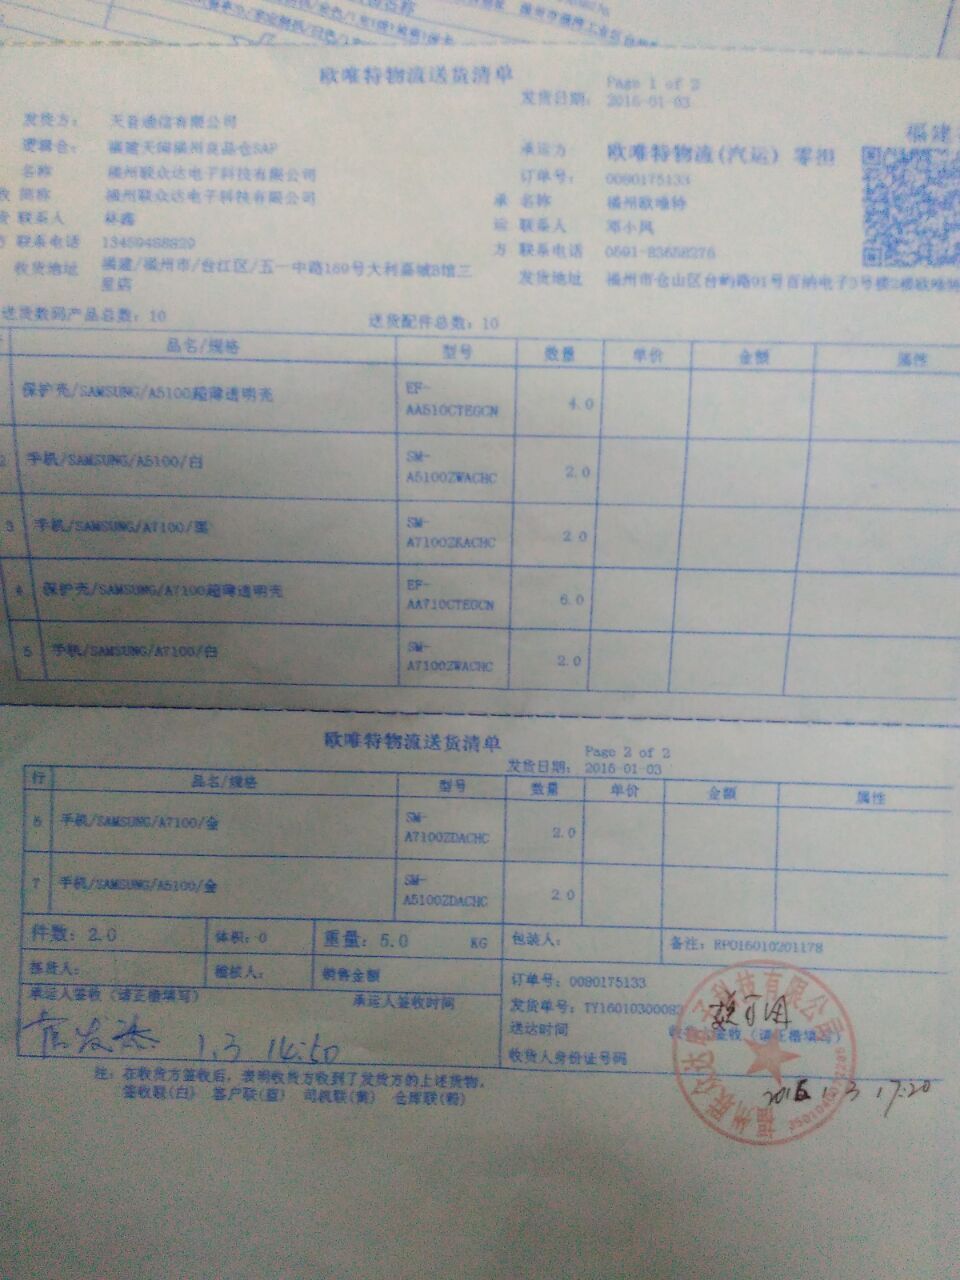 欧唯特物流送货清单
Page 1 of 2
发货日期: 2016-01-03
发货方: 天音通信有限公司
逻辑仓: 福建天闻福州良品仓SAP
名称 福州联众达电子科技有限公司
简称 福州联众达电子科技有限公司
联系人 林鑫
联系电话 13459488829
收货地址 福建/福州市/台江区/五一中路169号大利嘉城B馆三
星店
福建
承运方 欧唯特物流(汽运) 零担
订单号: 0080175133
承 名称 福州欧唯特
运 联系人 邓小凤
方 联系电话 0591-83658276
发货地址 福州市仓山区台屿路91号百纳电子3号楼2楼欧唯特
送货数码产品总数: 10 送货配件总数: 10
品名/规格 型号 数量 单价 金额 属性
保护壳/SAMSUNG/A5100超薄透明壳 EF-AA510CTEGCN 4.0
2 手机/SAMSUNG/A5100/白 SM-A5100ZWACHC 2.0
3 手机/SAMSUNG/A7100/黑 SM-A7100ZKACHC 2.0
4 保护壳/SAMSUNG/A7100超薄透明壳 EF-AA710CTEGCN 6.0
5 手机/SAMSUNG/A7100/白 SM-A7100ZWACHC 2.0
欧唯特物流送货清单
Page 2 of 2
发货日期: 2016-01-03
行 品名/规格 型号 数量 单价 金额 属性
6 手机/SAMSUNG/A7100/金 SM-A7100ZDACHC 2.0
7 手机/SAMSUNG/A5100/金 SM-A5100ZDACHC 2.0
件数: 2.0 体积: 0 重量: 5.0 KG 包装人: 备注: RP016010201178
拣货人: 稽核人: 销售金额 订单号: 0080175133
承运人签收 (请正楷填写) 承运人签收时间
发货单号: TY1601030008
送达时间 收货人签收 (请正楷填写)
收货人身份证号码
1.3 14:50
2016 1 3 17:20
注: 在收货方签收后, 表明收货方收到了发货方的上述货物.
签收联(白) 客户联(蓝) 司机联(黄) 仓库联(粉)